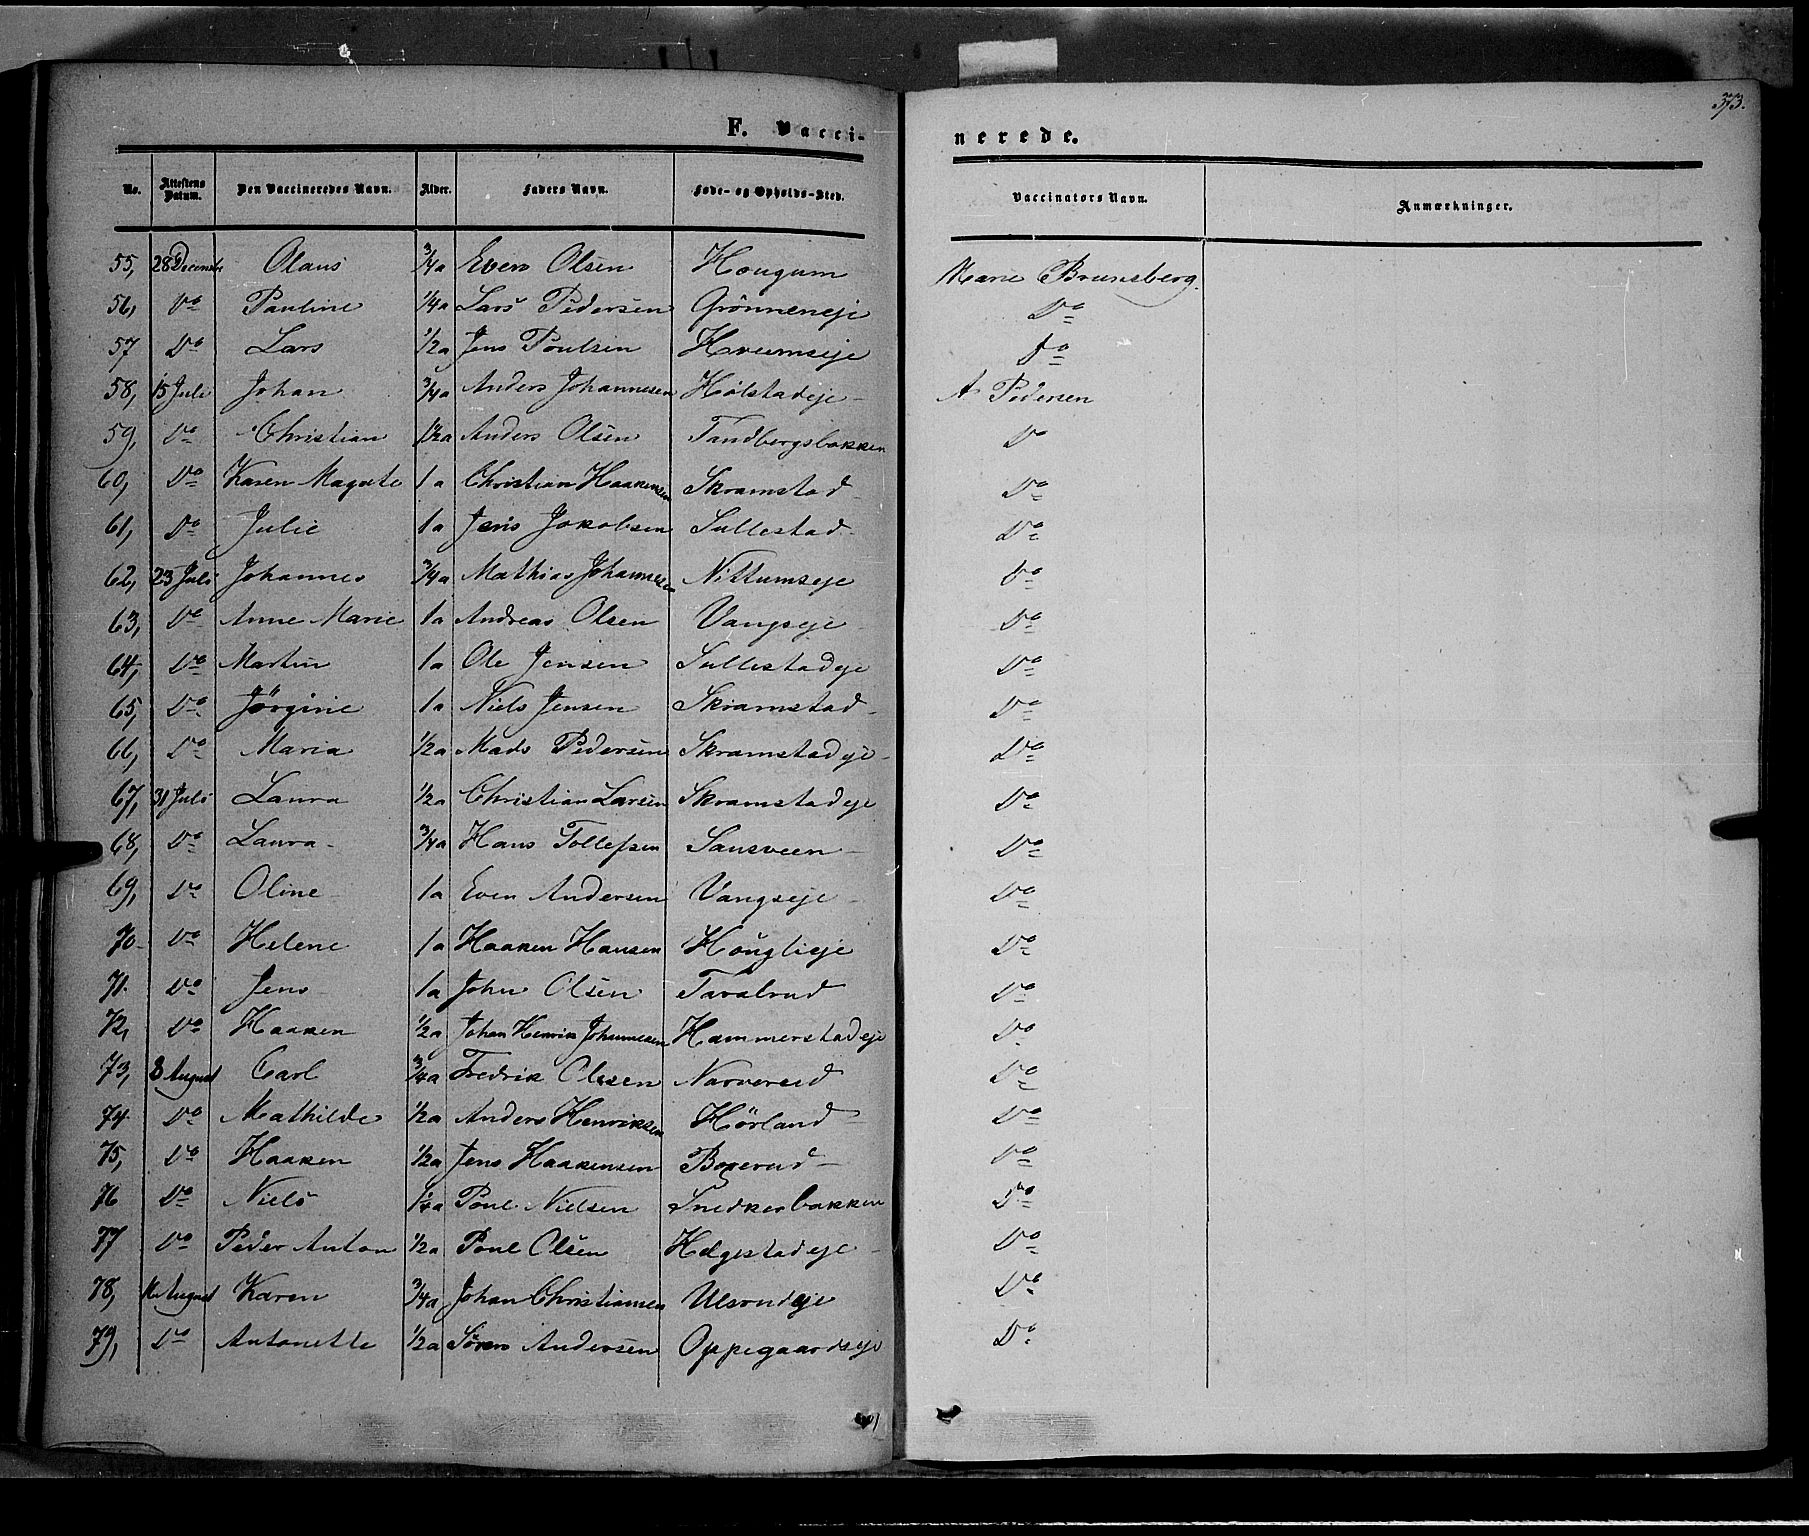 373.
F. Vaccinerede.
No. Attestens Datum. Den Vaccineredes Navn. Alder. Faders Navn. Føde- og Opholds-Sted. Vaccinators Navn. Anmærkninger.
55, 28 Decembr Olaus 3/4 a Even Olsen Hougum Marie Brunsberg.
56, Do Pauline 1/4 a Lars Pedersen Grönneneje Do
57 Do Lars 1/2 a Jens Poulsen Hveemseje Do
58, 15 Juli Johan 3/4 a Anders Johannesen Holstadeje A Pedersen
59, Do Christian 1 1/2 a Anders Olsen Tandbergsbakken Do
60, Do Karen Magrete 1 a Christian Haakensen Skramstad Do
61, Do Julie 1 a Jens Jakobsen Sullestad Do
62, 23 Juli Johannes 3/4 a Mathias Johannesen Nittumseje Do
63, Do Anne Marie 1 a Andreas Olsen Vangseje Do
64, Do Martin 1 a Ole Jensen Sullestadeje Do
65, Do Jörgine 1 a Niels Jensen Skramstad Do
66, Do Maria 1/2 a Mads Pedersen Skramstadeje Do
67, 31 Juli Laura 1/2 a Christian Larsen Skramstadeje Do
68, Do Laura 3/4 a Hans Tollefsen Sausveen Do
69, Do Oline 1 a Even Andersen Vangseje Do
70 Do Helene 1 a Haaken Hansen Houglieje Do
71. Do Jens 1 a John Olsen Taralrud Do
72, Do Haaken 1/2 a Johan Henrik Johannesen Hammerstadeje Do
73, 8 August Carl 3/4 a Fredrik Olssen Narverud Do
74 Do Mathilde 1/2 a Anders Henriksen Hörland Do
75, Do Haaken 1/2 a Jens Haakensen Do
76 Do Niels 1 1/4 a Poul Nielsen Snedkerbakken Do
77 Do Peder Anton 1/2 a Poul Olsen Helgestadeje Do
78, August Karen 3/4 a Johan Christiansen Ulsrudeje Do
79, Do Antonette 1/2 a Sören Andersen Oppegaardseje Do